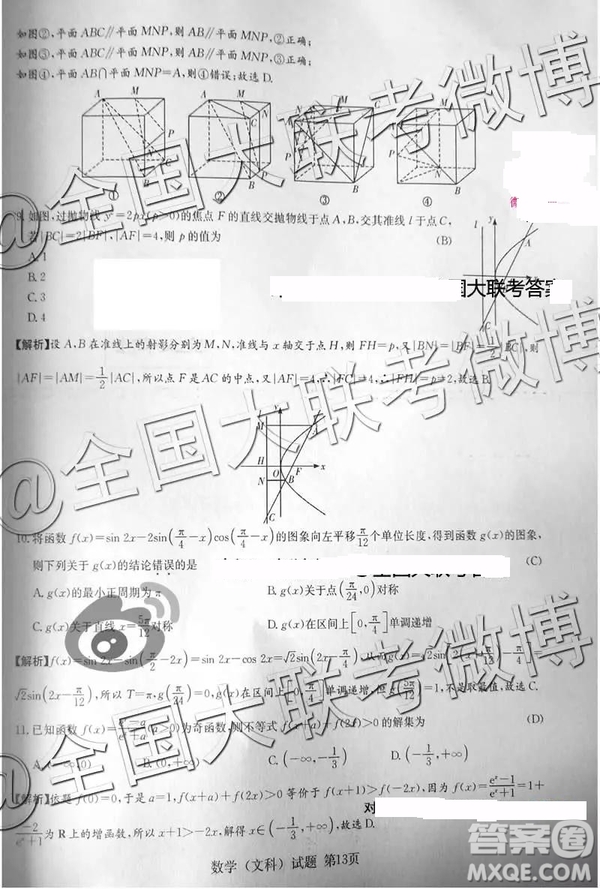 如图②,平面ABC∥平面MNP,则AB∥平面MNP,②正确;
如图③,平面ABC∥平面MNP,则AB∥平面MNP,③正确;
如图④,平面AB∩平面MNP=A,则④错误;故选D.
A M M A M A M
C C
P N P N P N P
N B B B B
① ② ③ ④
9.如图,过抛物线y²=2px(p>0)的焦点F的直线交抛物线于点A、B,交其准线l于点C,
若|BC|=2|BF|,|AF|=4,则p的值为 (B)
A.1
B.2
C.3
D.4
国大联考答案
【解析】设A、B在准线上的射影分别为M、N,准线与x轴交于点H,则FH=p,又|BN|=|BF|=1/2|BC|,则
|AF|=|AM|=1/2|AC|,所以点F是AC的中点,又|AF|=4,∴|FC|=4,∴|FH|=p=2,故选B.
M A
H O F x
N B
10.将函数f(x)=sin 2x-2sin(π/4-x)cos(π/4-x)的图象向左平移π/12个单位长度,得到函数g(x)的图象,
则下列关于g(x)的结论错误的是 (C)
A.g(x)的最小正周期为π B.g(x)关于点(π/24,0)对称
C.g(x)关于直线x=5π/12对称 D.g(x)在区间上[0,π/4]单调递增
【解析】f(x)=sin 2x-sin(π/2-2x)=sin 2x-cos 2x=√2sin(2x-π/4),
√2sin(2x-π/12),所以T=π,g(π/24)=0,g(x)在区间上[0,π/4]单调递增,
11.已知函数f(x)=为奇函数,则不等式f(x+a)+f(2x)>0的解集为 (D)
A.(0,+∞) C.(-∞,-1/3) D.(-1/3,+∞)
【解析】依题f(0)=0,于是a=1,f(x+a)+f(2x)>0等价于f(x+1)>f(-2x),因为f(x)=(eˣ-1)/(eˣ+1)=1+
-2/(eˣ+1)为R上的增函数,所以x+1>-2x,解得x∈(-1/3,+∞),故选D.
数学(文科)试题 第13页
@全国大联考微博
@全国大联考微博
@全国大联考微博
答案圈
MXQE.COM